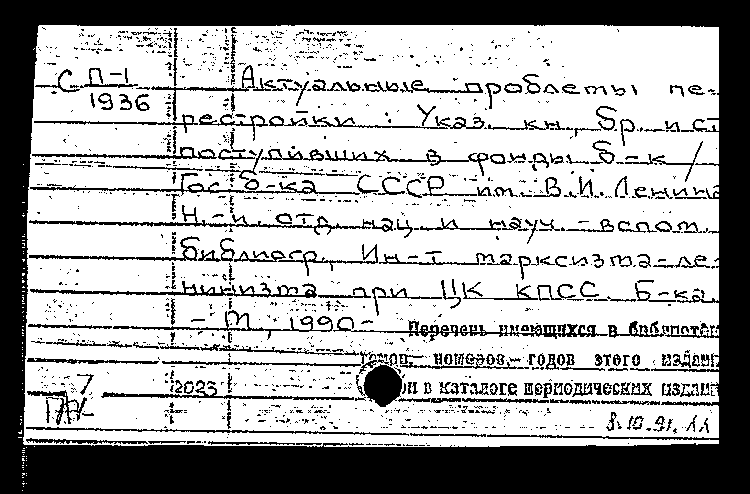 С П-1
1936
Актуальные проблемы пе-
рестройки : Указ. кн., бр. и ст
поступивших в фонды б-к /
Гос. б-ка СССР им. В.И. Ленина
Н.-и. отд. нац. и науч.-вспом.
библиогр., Ин-т марксизма-ле-
нинизма при ЦК КПСС. Б-ка.
- М., 1990-
Перечень имеющихся в библиотек
томов, номеров, годов этого издани
и в каталоге периодических издани
2023
8.10.91.